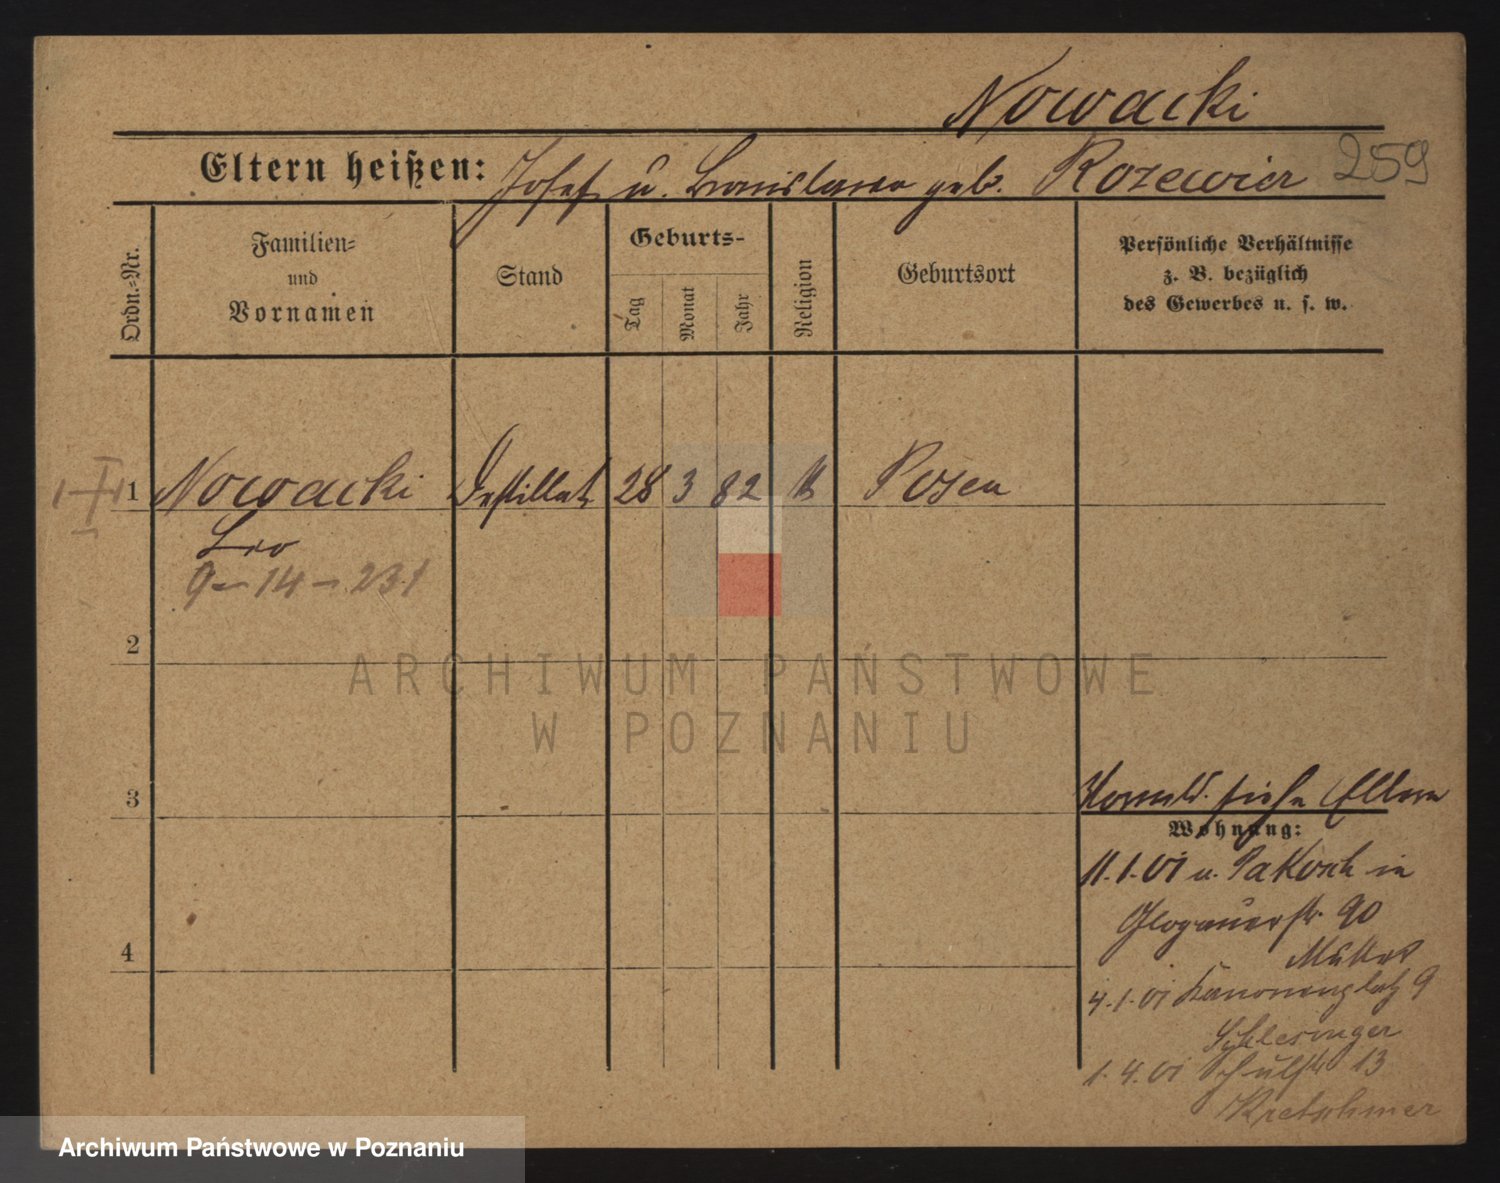 Nowacki
Eltern heißen: Josef u. Bronislawa geb. Rozewicz 259
Ordn.-Nr.
Familien-
und
Vornamen
Stand
Geburts-
Tag
Monat
Jahr
Religion
Geburtsort
Persönliche Verhältnisse
z. B. bezüglich
des Gewerbes u. s. w.
1 Nowacki Destillat 28 3 82 k Posen
Leo
14 - 231
2
ARCHIWUM PAŃSTWOWE
W POZNANIU
3
siehe Eltern
Wohnung:
11.1.01 u. Pakosch in
Glogauerstr. 90
Mutter
4
4.1.01 Kanonenplatz 9
Schlesinger
1.4.01 Schulstr 13
Kretschmer
Archiwum Państwowe w Poznaniu